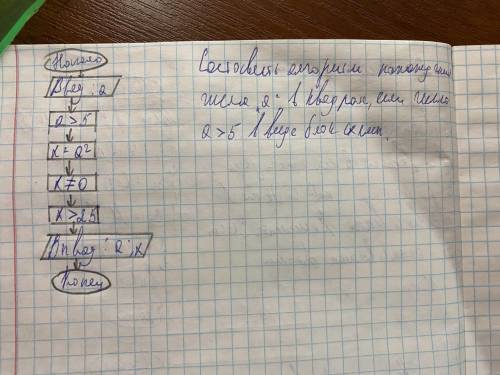 Начало
Ввод: a
a > 5
x = a²
x ≠ 0
x > 25
Вывод: a; x
Конец
Составить алгоритм нахождения
числа "a" в квадрат, если число
a > 5 в виде блок схемы.